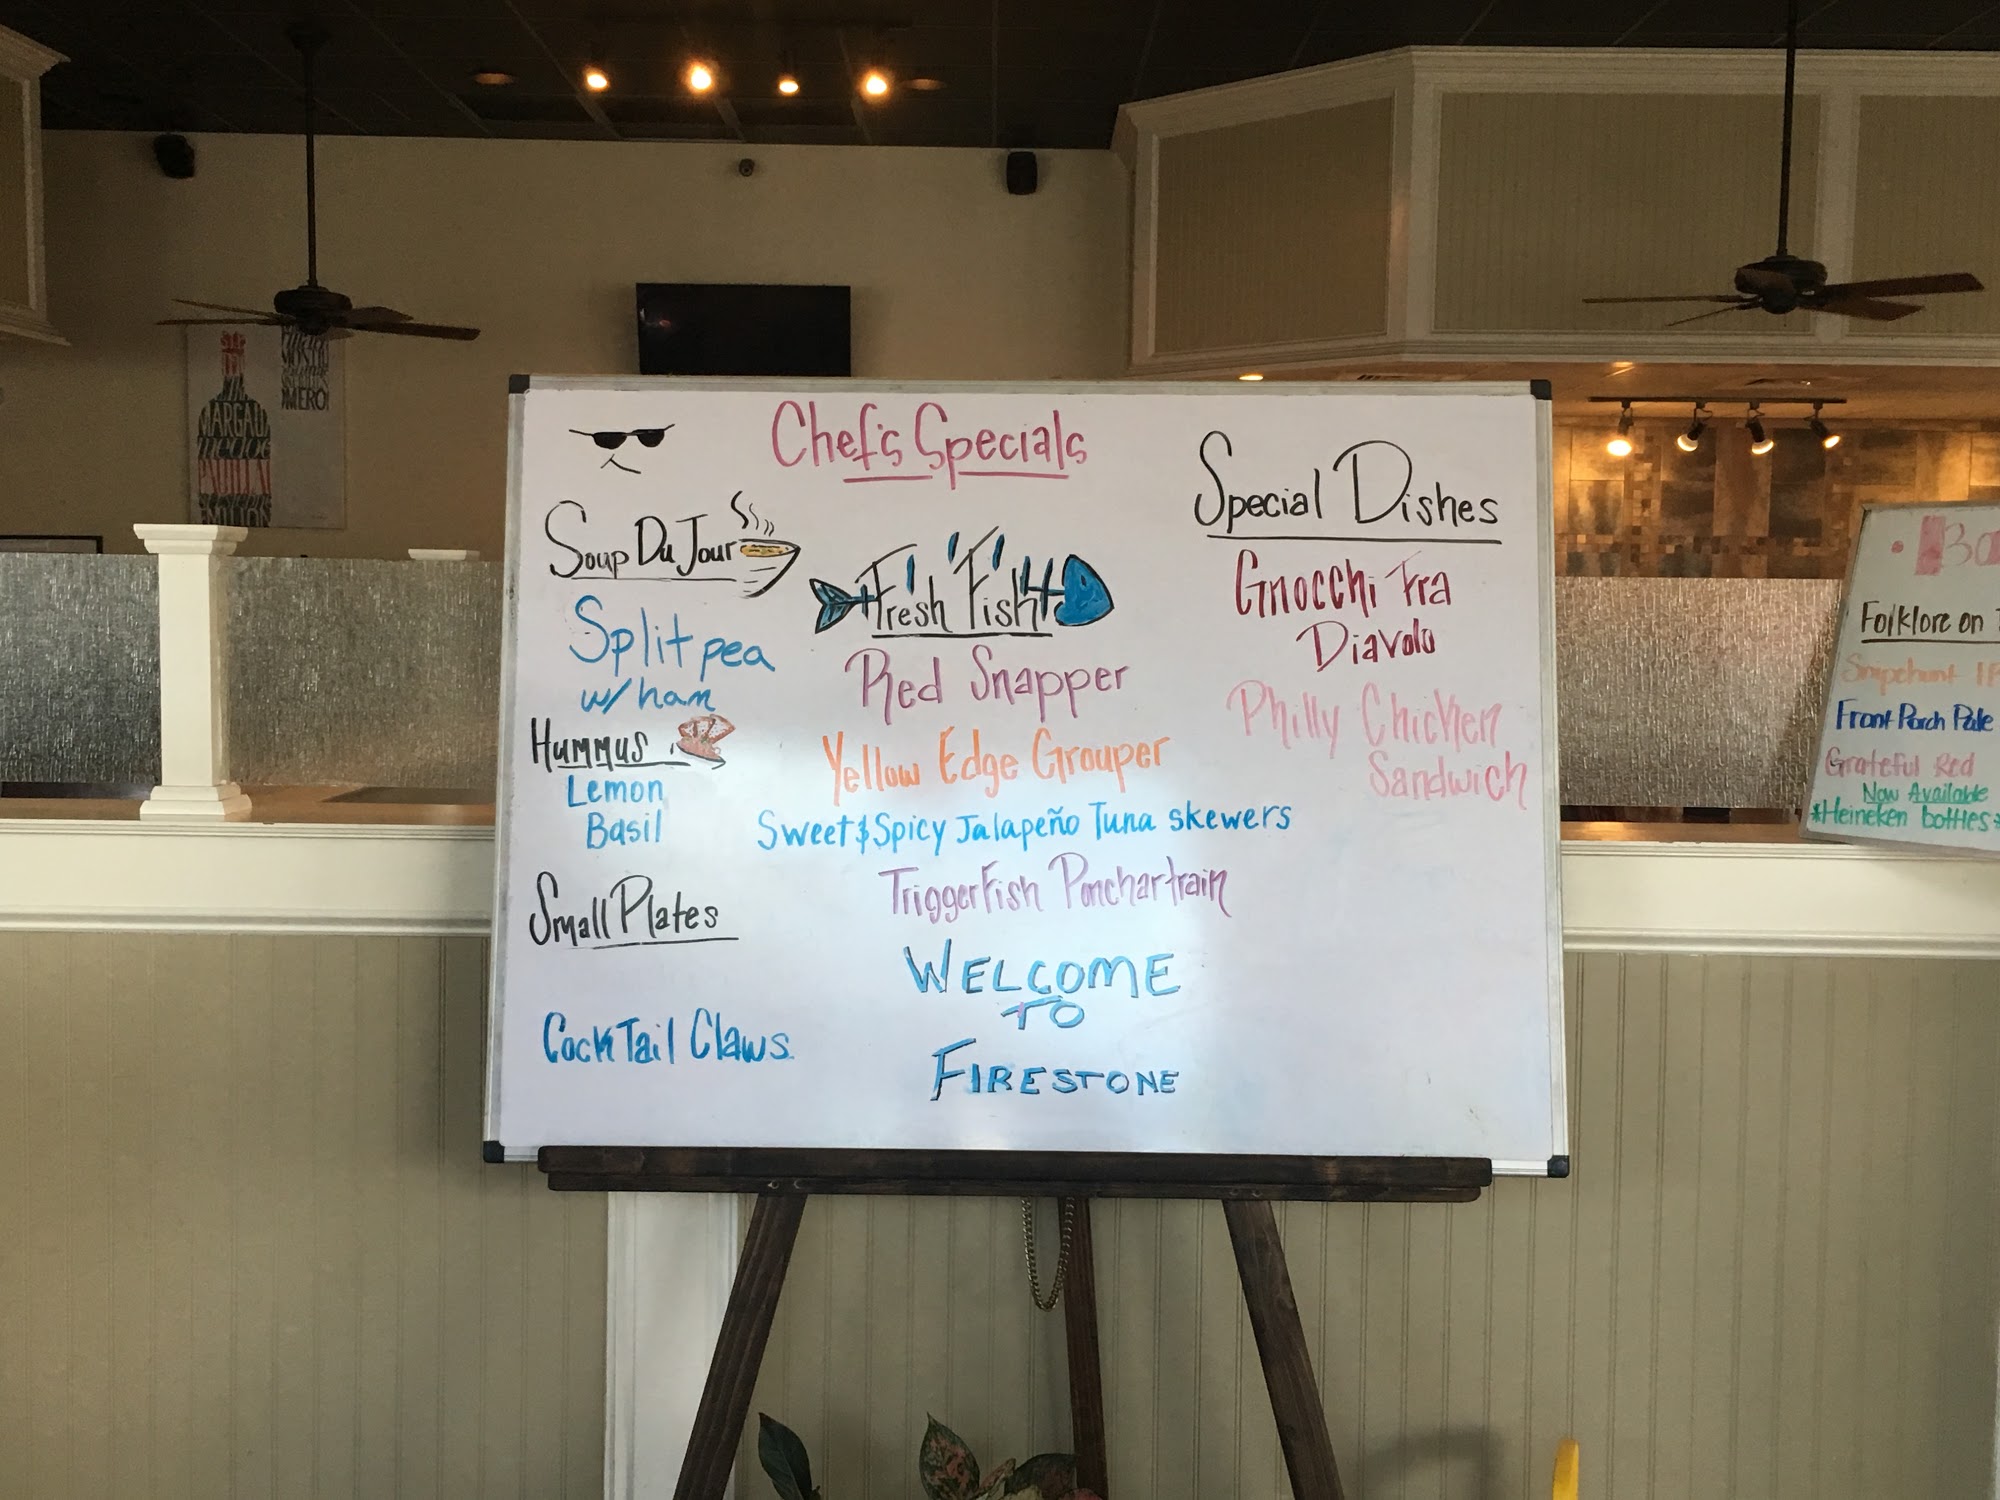 Chef's Specials
Soup Du Jour
Split pea
w/ ham
Hummus
Lemon
Basil
Small Plates
Cocktail Claws
Fresh Fish
Red Snapper
Yellow Edge Grouper
Sweet & Spicy Jalapeño Tuna Skewers
Triggerfish Ponchartrain
WELCOME
TO
FIRESTONE
Special Dishes
Gnocchi Fra
Diavolo
Philly Chicken
Sandwich
Folklore on
Snipehunt IP
Front Porch Pale
Grateful Red
Now Available
*Heineken bottles*
MARGAUX
PADILLA
MILION
MERO